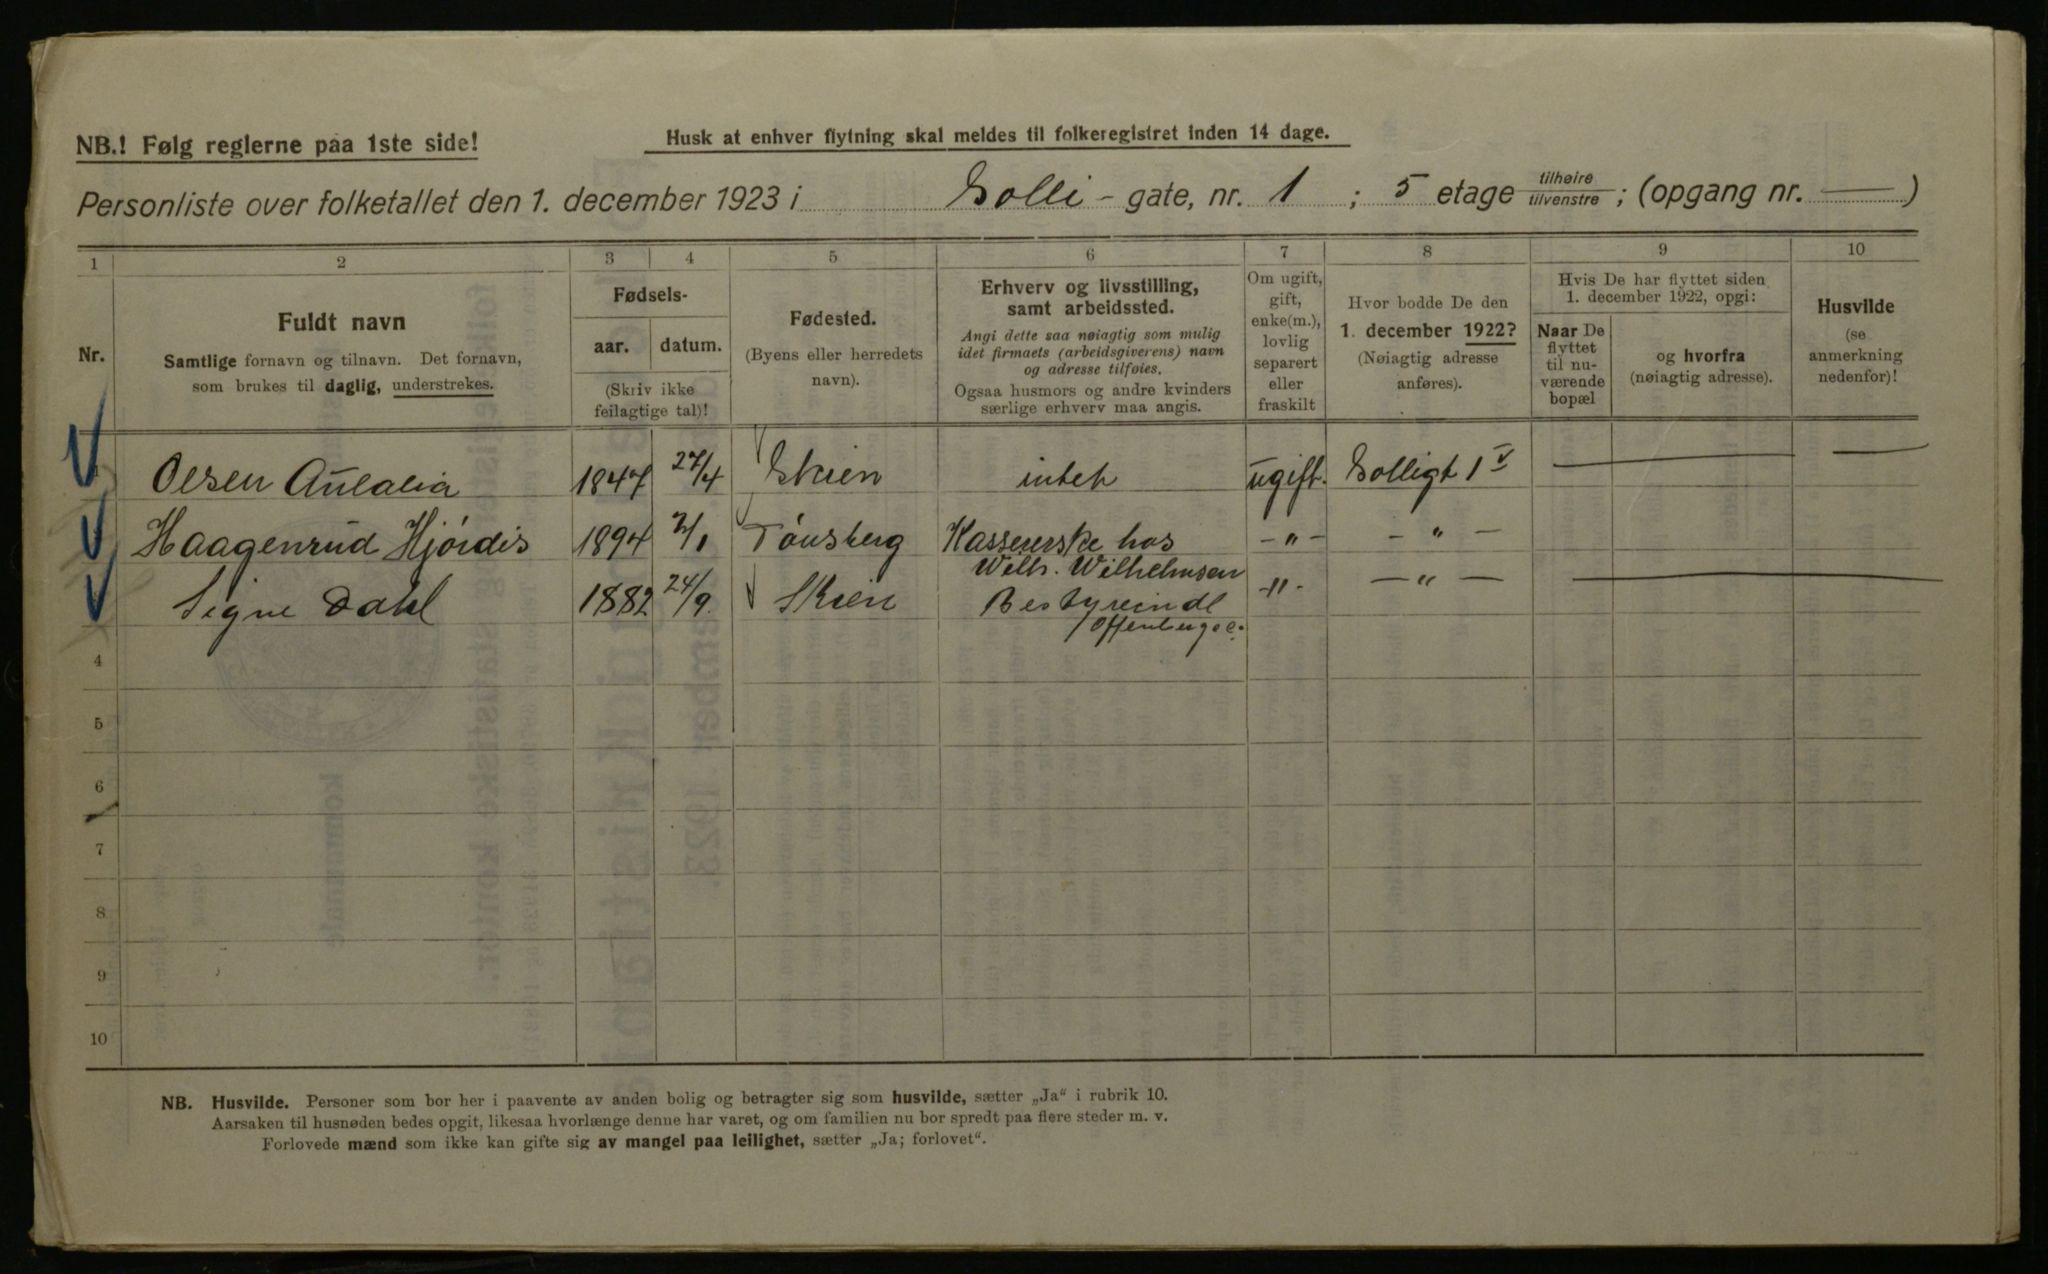 NB.! Følg reglerne paa 1ste side!
Husk at enhver flytning skal meldes til folkeregistret inden 14 dage.
Personliste over folketallet den 1. december 1923 i Solli - gate, nr. 1 ; 5 etage tilhøire/tilvenstre ; (opgang nr. — )
1 2 3 4 5 6 7 8 9 10
Nr.
Fuldt navn
Samtlige fornavn og tilnavn. Det fornavn,
som brukes til daglig, understrekes.
Fødsels-
aar. datum.
(Skriv ikke
feilagtige tal)!
Fødested.
(Byens eller herredets
navn).
Erhverv og livsstilling,
samt arbeidssted.
Angi dette saa nøiagtig som mulig
idet firmaets (arbeidsgiverens) navn
og adresse tilføies.
Ogsaa husmors og andre kvinders
særlige erhverv maa angis.
Om ugift,
gift,
enke(m.),
lovlig
separert
eller
fraskilt
Hvor bodde De den
1. december 1922?
(Nøiagtig adresse
anføres).
Hvis De har flyttet siden
1. december 1922, opgi:
Naar De
flyttet
til nu-
værende
bopæl
og hvorfra
(nøiagtig adresse).
Husvilde
(se
anmerkning
nedenfor)!
Olsen 1847 27/4 Skien intet ugift. Solligt 1 V — —
Haagenrud Hjórdis 1894 2/1 Tónsberg Kassererske hos - " - - " -
Wilh. Wilhelmsen
Signe Dahl 1882 24/9. Skien - " - — " — —
4
5
6
7
8
9
10
NB. Husvilde. Personer som bor her i paavente av anden bolig og betragter sig som husvilde, sætter „Ja“ i rubrik 10.
Aarsaken til husnøden bedes opgit, likesaa hvorlænge denne har varet, og om familien nu bor spredt paa flere steder m. v.
Forlovede mænd som ikke kan gifte sig av mangel paa leilighet, sætter „Ja; forlovet“.